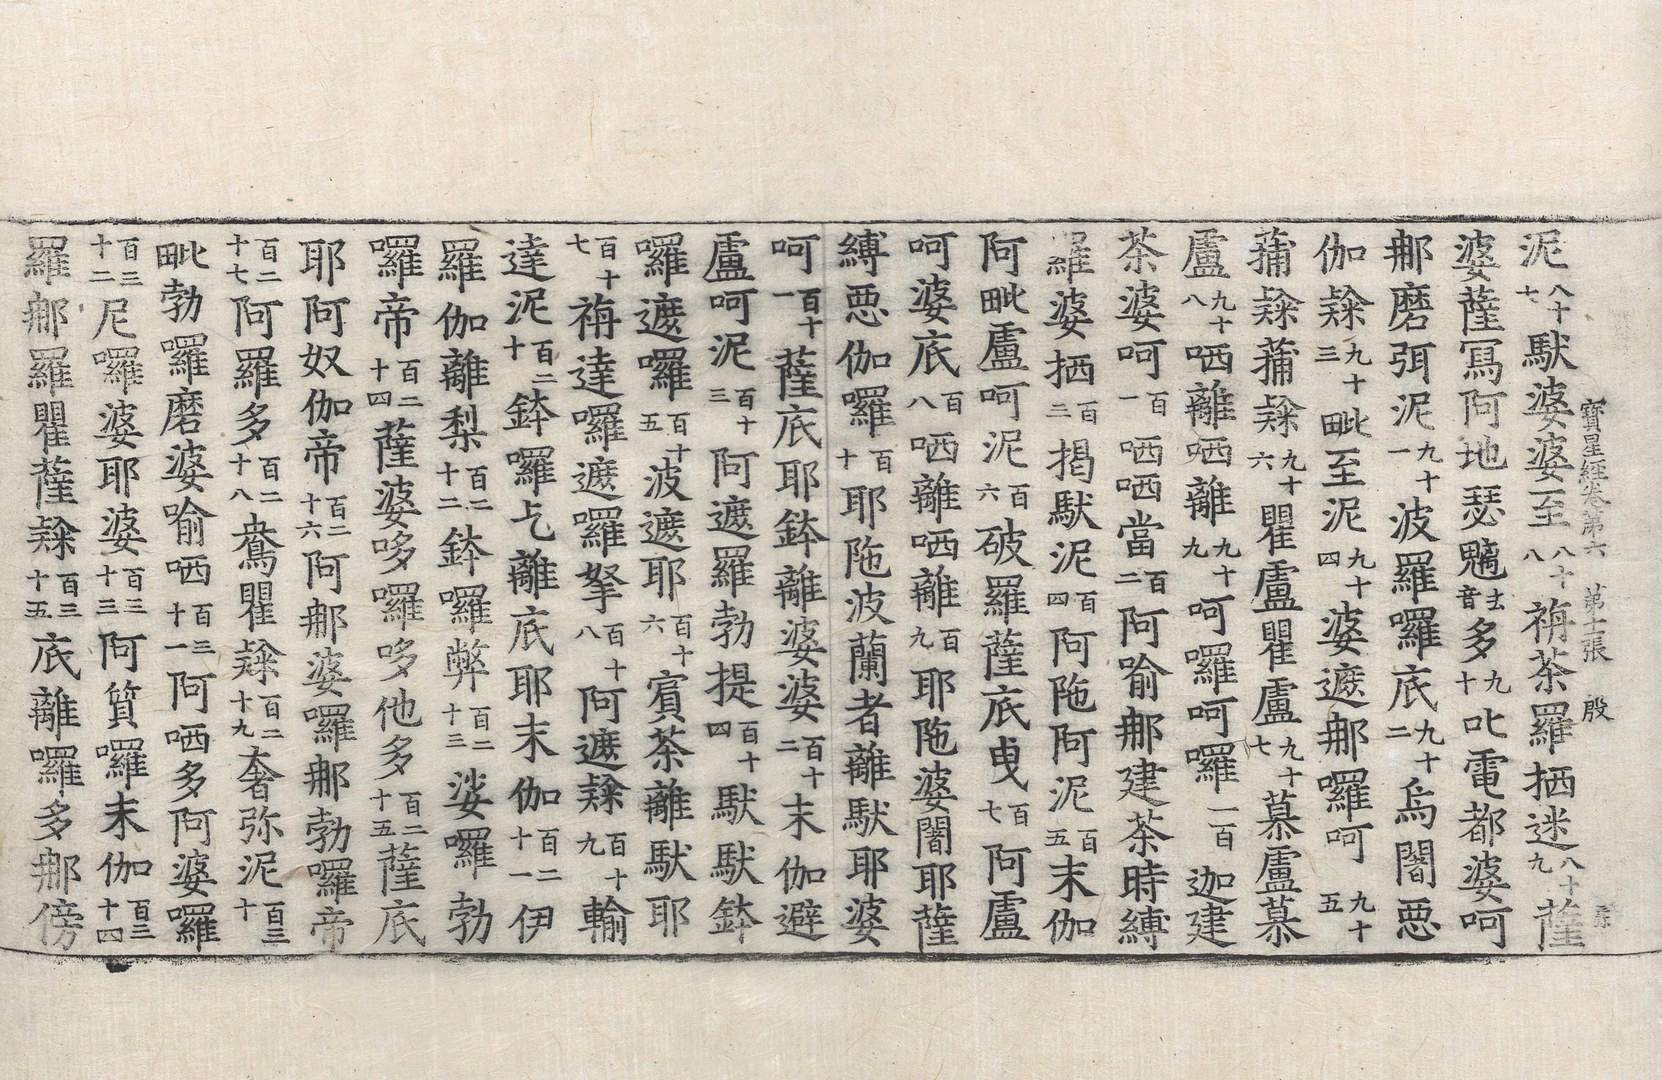 寶星經卷第六 第十一張 殷
泥八十七馱婆婆至八十八袡茶羅栖迷八十九薩
婆薩寫阿地瑟魑去音多九十叱電都婆呵
那磨弭泥九十一波羅囉底九十二烏闍惡
伽𨅖九十三毗至泥九十四婆遮那囉呵九十五
蒲𨅖蒲𨅖九十六瞿盧瞿盧九十七慕盧慕
盧九十八哂離哂離九十九呵囉呵囉一百迦建
茶婆呵百一哂哂當百二阿喻那建茶時縛
羅婆栖百三揭馱泥百四阿陁阿泥百五末伽
阿毗盧呵呵泥百六破羅薩底曳百七阿盧
呵婆底百八哂離哂離百九耶陁婆闍耶薩
縛惡伽囉百十耶陁波蘭者離馱耶婆
呵百十一薩底耶鉢離婆婆百十二末伽避
盧呵泥百十三阿遮羅勃提百十四馱馱鉢
囉遮囉百十五波遮耶百十六賓茶離馱耶
百十七袡達囉遮囉拏百十八阿遮𨅖百十九輸
達泥百二十鉢囉乞離底耶末伽百二十一伊
羅伽離梨百二十二鉢囉弊百二十三娑囉勃
囉帝百二十四薩婆哆囉哆他多百二十五薩底
耶阿奴伽帝百二十六阿那婆囉那勃囉帝
百二十七阿羅多百二十八鴦瞿𨅖百二十九奢弥泥百三十
毗勃囉磨婆喻哂百三十一阿哂多阿婆囉
百三十二尼囉婆耶婆百三十三阿質囉末伽百三十四
羅那羅瞿薩𨅖百三十五底離囉多那傍